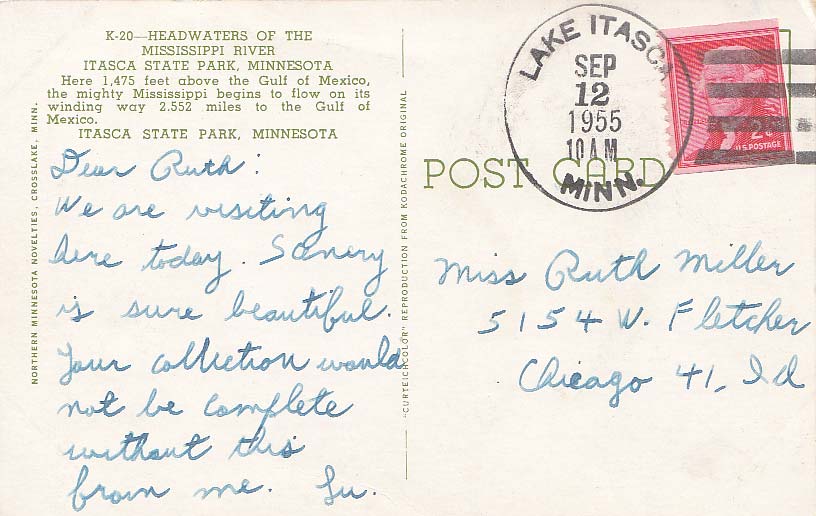 K-20—HEADWATERS OF THE
MISSISSIPPI RIVER
ITASCA STATE PARK, MINNESOTA
Here 1,475 feet above the Gulf of Mexico,
the mighty Mississippi begins to flow on its
winding way 2.552 miles to the Gulf of
Mexico.
ITASCA STATE PARK, MINNESOTA
NORTHERN MINNESOTA NOVELTIES, CROSSLAKE, MINN.
Dear Ruth:
We are visiting
here today. Scenery
is sure beautiful.
Your collection would
not be complete
without this
from me. Lu.
"CURTEICHCOLOR" REPRODUCTION FROM KODACHROME ORIGINAL
POST CARD
LAKE ITASCA
SEP
12
1955
10 AM
MINN.
2¢
U.S. POSTAGE
Miss Ruth Miller
5154 W. Fletcher
Chicago 41, Ill